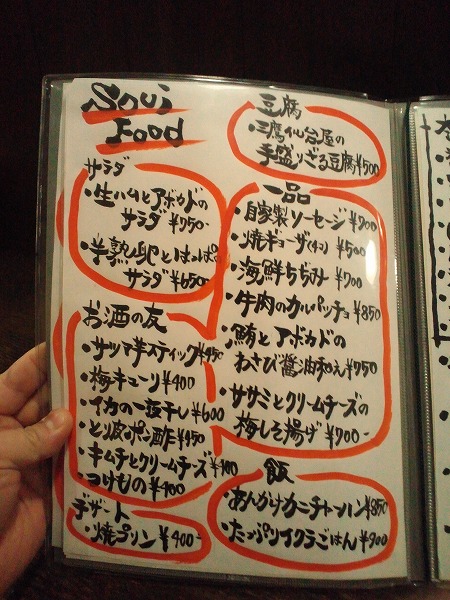 Soul
Food
サラダ
・生ハムとアボカドの
サラダ ¥750-
・半熟卵とはっぱの
サラダ ¥650-
お酒の友
・サツマ芋スティック ¥450
・梅キューリ ¥400
・イカの一夜干し ¥600
・とり皮ポン酢 ¥450
・キムチとクリームチーズ ¥400
・つけもの ¥400
デザート
・焼プリン ¥400-
豆腐
・三鷹仙台屋の
手盛りざる豆腐 ¥500
一品
・自家製ソーセージ ¥700
・焼ギョーザ(4コ) ¥500
・海鮮ちぢみ ¥700
・牛肉のカルパッチョ ¥850
・鮪とアボカドの
わさび醤油和え ¥750
・ササミとクリームチーズの
梅しそ揚げ ¥700-
飯
・あんかけカニチャーハン ¥850
・たっぷりイクラごはん ¥900